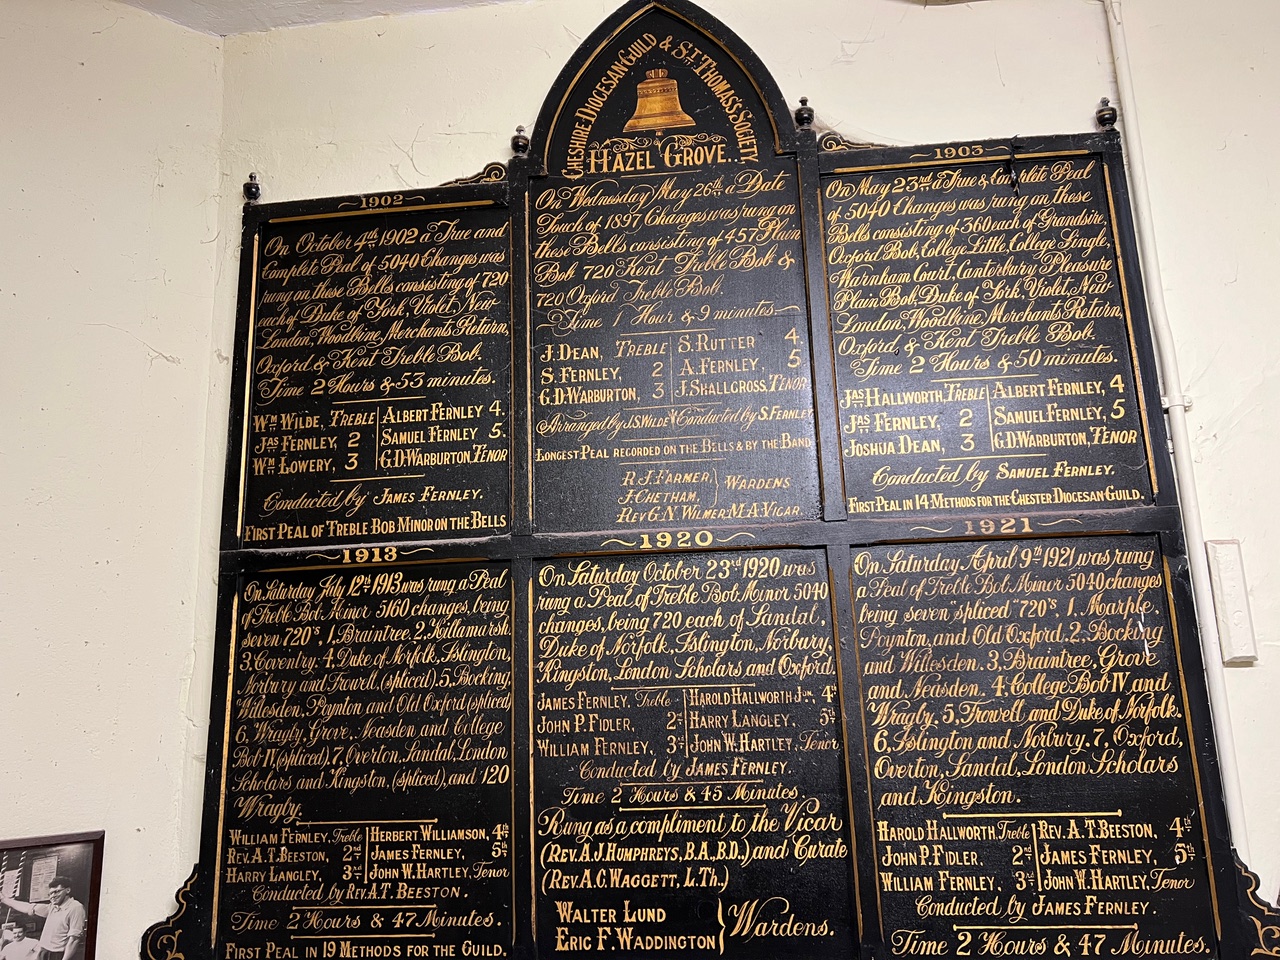 CHESHIRE DIOCESAN GUILD & ST THOMAS'S SOCIETY
HAZEL GROVE..
1902
On October 4th 1902 a True and
Complete Peal of 5040 Changes was
rung on these Bells consisting of 720
each of Duke of York, Violet, New
London, Woodbine, Merchants Return,
Oxford & Kent Treble Bob.
Time 2 Hours & 53 minutes.
WM WILDE, TREBLE
JAS FERNLEY, 2
WM LOWERY, 3
ALBERT FERNLEY 4.
SAMUEL FERNLEY 5.
G.D.WARBURTON, TENOR
Conducted by JAMES FERNLEY.
FIRST PEAL OF TREBLE BOB MINOR ON THE BELLS
On Wednesday May 26th a Date
Touch of 1897 Changes was rung on
these Bells consisting of 457 Plain
Bob 720 Kent Treble Bob &
720 Oxford Treble Bob.
Time 1 Hour & 9 minutes
J.DEAN, TREBLE
S.FERNLEY, 2
G.D.WARBURTON, 3
S.RUTTER 4
A.FERNLEY, 5
J.SHALLGROSS, TENOR
Arranged by J.S.WILDE Conducted by S.FERNLEY
LONGEST PEAL RECORDED ON THE BELLS & BY THE BAND
R.J.FARMER,
J.CHETHAM,
WARDENS
REV G.N.WILMER M.A. VICAR.
1903
On May 23rd a True & Complete Peal
of 5040 Changes was rung on these
Bells consisting of 360 each of Grandsire,
Oxford Bob, College Little, College Single,
Warnham Court, Canterbury Pleasure
Plain Bob, Duke of York, Violet, New
London, Woodbine, Merchants Return,
Oxford, & Kent Treble Bob.
Time 2 Hours & 50 minutes.
JAS HALLWORTH, TREBLE
JAS FERNLEY, 2
JOSHUA DEAN, 3
ALBERT FERNLEY, 4
SAMUEL FERNLEY, 5
G.D.WARBURTON, TENOR
Conducted by SAMUEL FERNLEY.
FIRST PEAL IN 14 METHODS FOR THE CHESTER DIOCESAN GUILD.
1913
On Saturday July 12th 1913 was rung a Peal
of Treble Bob Minor 5160 changes, being
seven 720's, 1, Braintree. 2, Killamarsh.
3, Coventry. 4, Duke of Norfolk, Islington,
Norbury and Trowell, (spliced). 5, Bocking,
Willesden, Poynton and Old Oxford (spliced)
6, Wragby, Grove, Neasden and College
Bob IV, (spliced). 7, Overton, Sandal, London
Scholars and Kingston, (spliced), and 120
Wragby.
WILLIAM FERNLEY, Treble
REV. A.T. BEESTON, 2nd
HARRY LANGLEY, 3rd
HERBERT WILLIAMSON, 4th
JAMES FERNLEY, 5th
JOHN W. HARTLEY, Tenor
Conducted by REV. A.T. BEESTON.
Time 2 Hours & 47 Minutes.
FIRST PEAL IN 19 METHODS FOR THE GUILD.
1920
On Saturday October 23rd 1920 was
rung a Peal of Treble Bob Minor 5040
changes, being 720 each of Sandal,
Duke of Norfolk, Islington, Norbury,
Kingston, London Scholars and Oxford.
JAMES FERNLEY, Treble
JOHN P. FIDLER, 2nd
WILLIAM FERNLEY, 3rd
HAROLD HALLWORTH JUN. 4th
HARRY LANGLEY, 5th
JOHN W. HARTLEY, Tenor
Conducted by JAMES FERNLEY.
Time 2 Hours & 45 Minutes.
Rung as a compliment to the Vicar
(REV. A.J. HUMPHREYS, B.A., B.D.,) and Curate
(REV. A.C. WAGGETT, L.Th.,)
WALTER LUND
ERIC F. WADDINGTON
Wardens.
1921
On Saturday, April 9th 1921 was rung
a Peal of Treble Bob Minor 5040 changes
being seven "spliced" 720's, 1, Marple,
Poynton, and Old Oxford. 2, Bocking
and Willesden. 3, Braintree, Grove
and Neasden. 4, College Bob IV and
Wragby. 5, Trowell and Duke of Norfolk.
6, Islington and Norbury. 7, Oxford,
Overton, Sandal, London Scholars
and Kingston.
HAROLD HALLWORTH, Treble
JOHN P. FIDLER, 2nd
WILLIAM FERNLEY, 3rd
REV. A.T. BEESTON, 4th
JAMES FERNLEY, 5th
JOHN W. HARTLEY, Tenor
Conducted by JAMES FERNLEY.
Time 2 Hours & 47 Minutes.